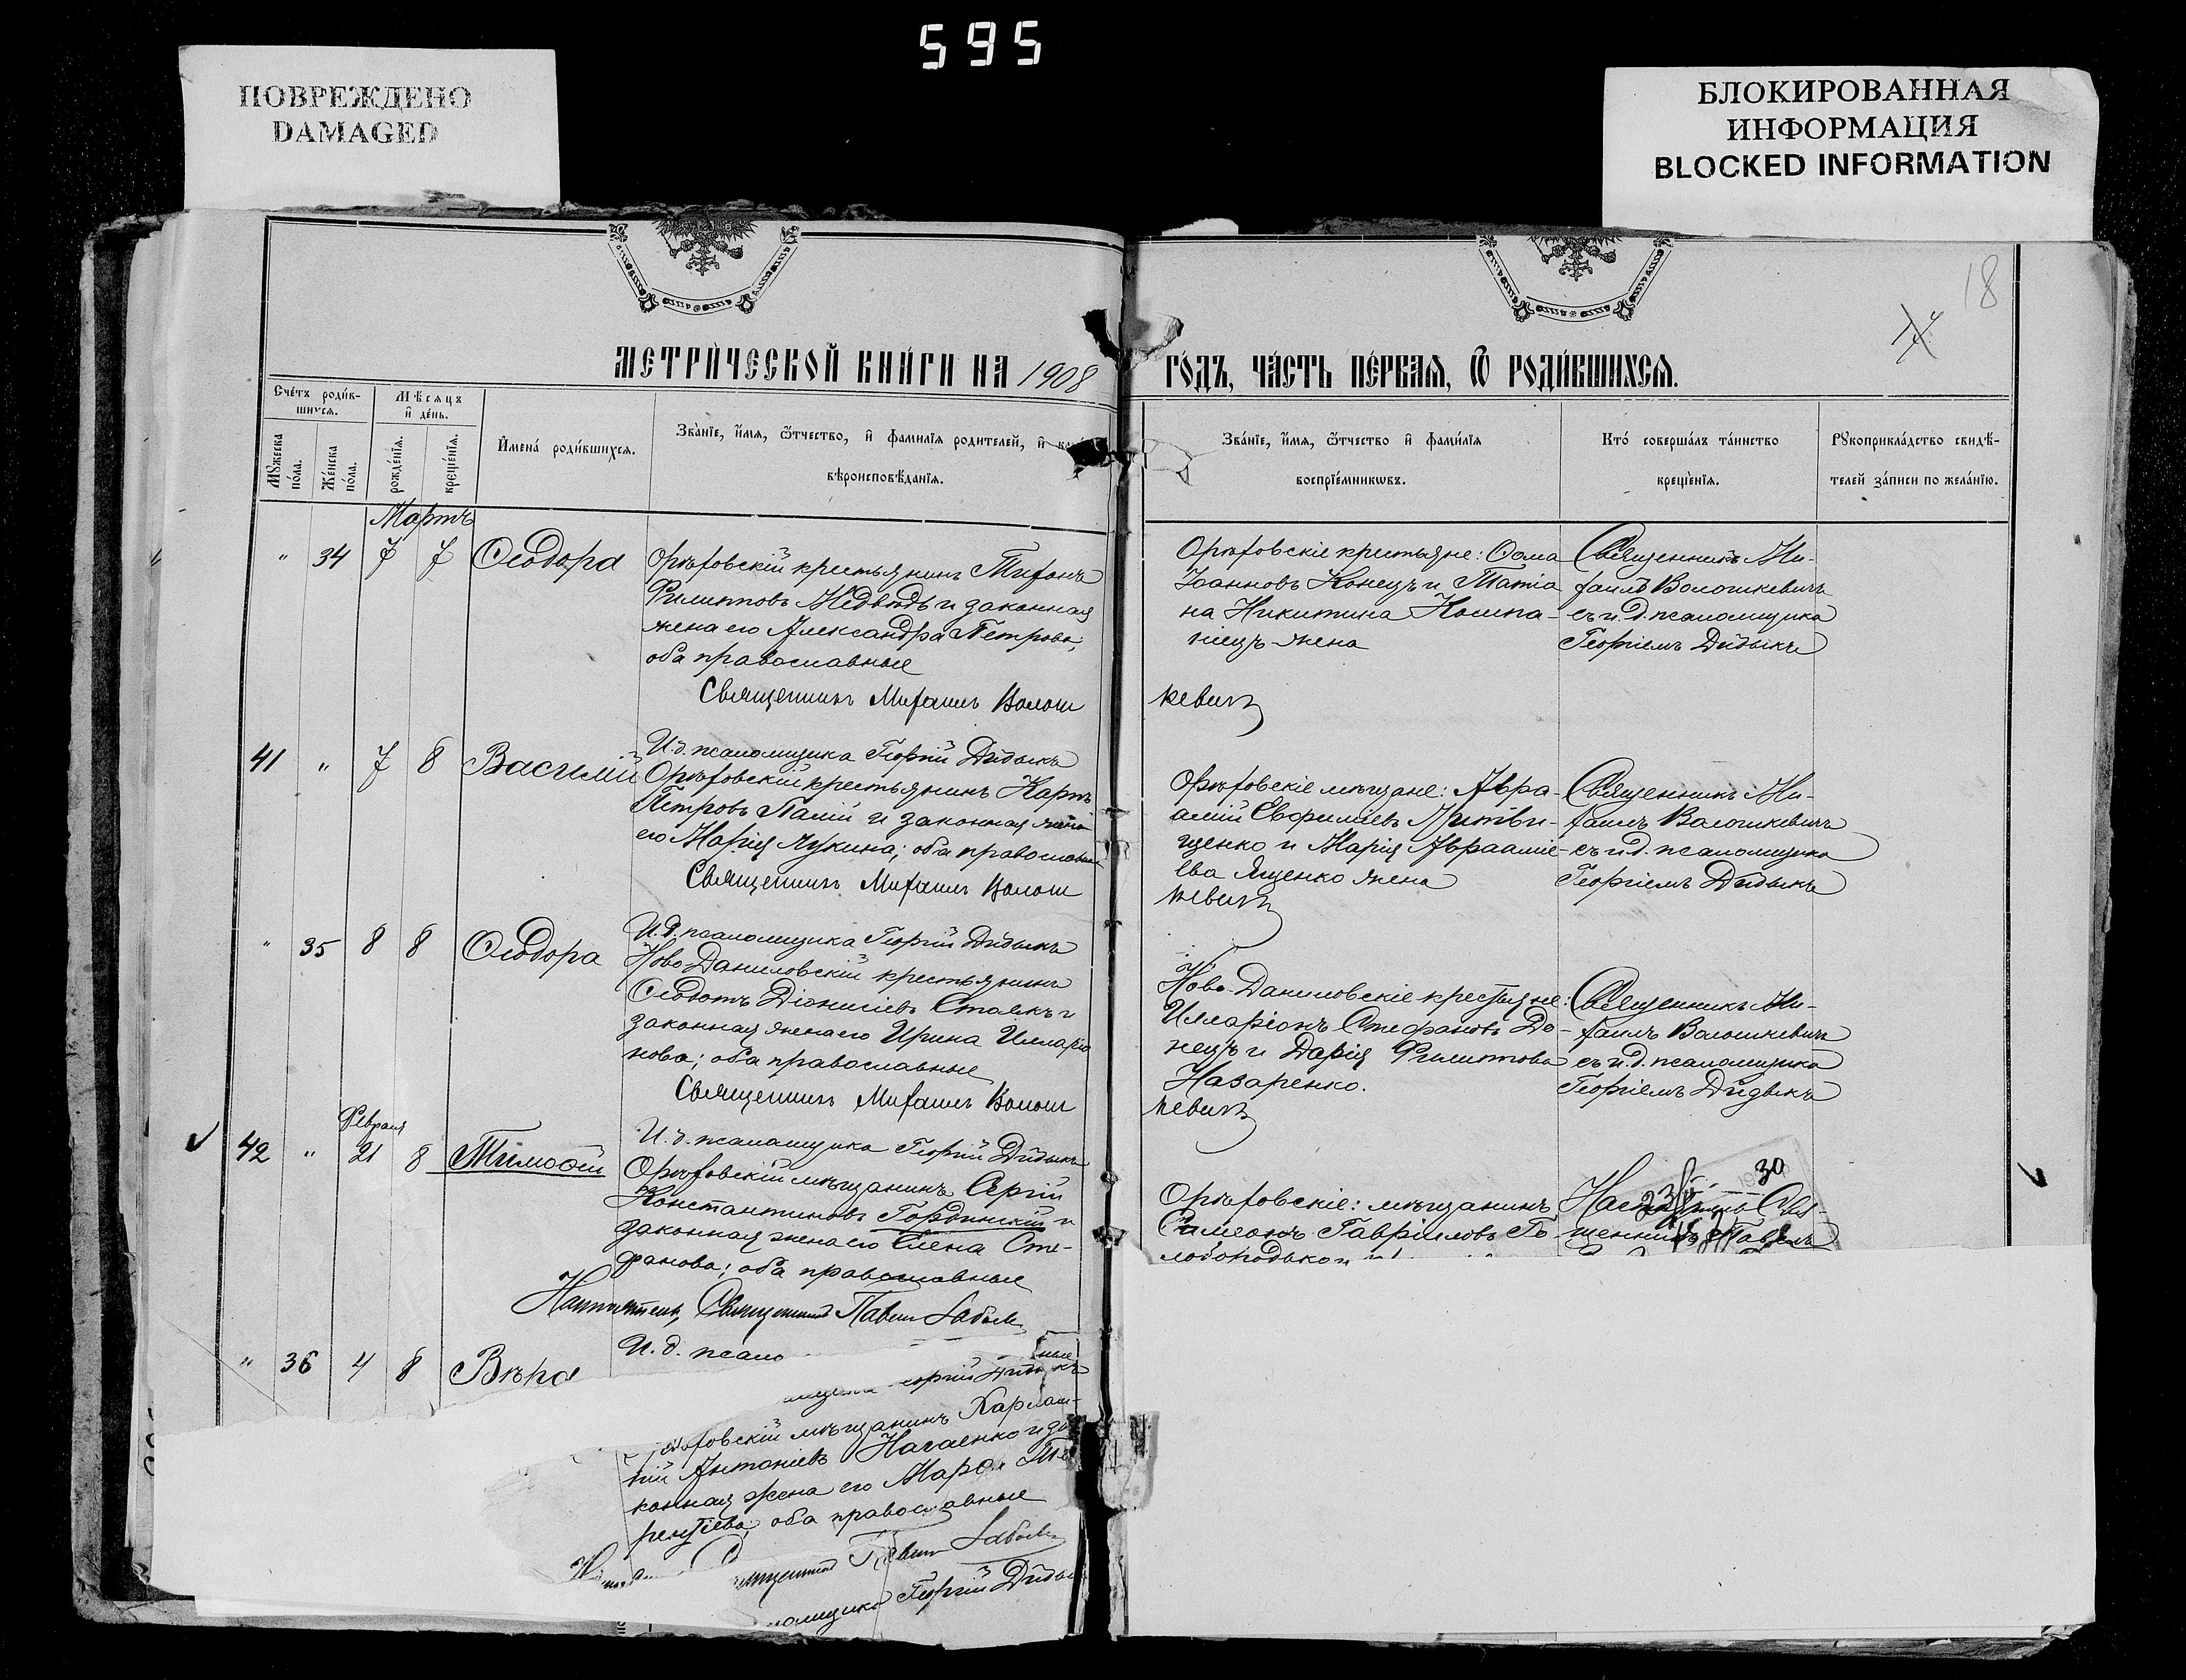 595
ПОВРЕЖДЕНО
DAMAGED
БЛОКИРОВАННАЯ
ИНФОРМАЦИЯ
BLOCKED INFORMATION
18
17
МЕТРИ́ЧЕСКОЙ КНИ́ГИ НА 1908
ГО́ДЪ, ЧА́СТЬ ПЕ́РВАЯ, Ѽ РОДИ́ВШИХСЯ.
Сче́тъ роди́в-
шихся.
Мѣ́сяцъ
и҆ де́нь.
Му́жеска по́ла.
Же́нска по́ла.
рожде́нїя.
креще́нїя.
И҆мена̀ роди́вшихся.
Зва́нїе, и҆́мя, ѻ҆́тчество, и҆ фамилїя родителей, и҆
вѣроисповѣ́данїя.
Зва́нїе, и҆́мя, ѻ҆́тчество и҆ фами́лїя
воспрїе́мникѡвъ.
Кто̀ соверша́лъ та́инство
креще́нїя.
Рꙋкоприкла́дство свидѣ́-
телей за́писи по жела́нїю.
Мартъ
" 34 7 7 Ѳеодора
Орѣховскій крестьянинъ Тихонъ
Филипповъ Медвѣдь и законная
жена его Александра Петрова;
оба православные
Священникъ Михаилъ Волош
кевичъ
И. д. псаломщика Георгій Дидыкъ
Орѣховскіе крестьяне: Ѳома
Іоанновъ Конецъ и Татіа
на Никитина Колпа-
жена
Священникъ Ми-
хаилъ Волошкевичъ
съ и. д. псаломщика
Георгіемъ Дидыкъ
41 " 7 8 Василій
Орѣховскій крестьянинъ Карпъ
Петровъ Палій и законная жена
его Марія Лукина; оба православные
Священникъ Михаилъ Волош
кевичъ
И. д. псаломщика Георгій Дидыкъ
Орѣховскіе мѣщане: Авра-
амій Евфиміевъ Литви-
щенко и Марія Авраамі-
ева Ященко жена
Священникъ Ми-
хаилъ Волошкевичъ
съ и. д. псаломщика
Георгіемъ Дидыкъ
" 35 8 8 Ѳеодора
Ново-Даниловскій крестьянинъ
Ѳеодотъ Діонисіевъ Столякъ и
законная жена его Ирина Илларіо
нова; оба православные
Священникъ Михаилъ Волош
кевичъ
И. д. псаломщика Георгій Дидыкъ
Ново-Даниловскіе крестьяне:
Илларіонъ Стефановъ До-
нецъ и Дарія Филиппова
Назаренко.
Священникъ Ми-
хаилъ Волошкевичъ
съ и. д. псаломщика
Георгіемъ Дидыкъ
Февраля
42 " 21 8 Тимоѳей
Орѣховскій мѣщанинъ Сергій
Константиновъ Гординскій и
законная жена его Елена Сте-
фанова; оба православные
Настоятель, Священникъ Павелъ
И. д. псало
Орѣховскіе: мѣщанинъ
Симеонъ Гавріиловъ Го-
лобородько и
30
Настоятель Свя-
щенникъ Павелъ
" 36 4 8 Вѣра
Георгій Дидыкъ
ховскій мѣщанинъ Харлам-
пій Антоніевъ Нагаенко и за
конная жена его Марѳа Те
рентіева; оба православные
Священникъ Павелъ
псаломщика Георгій Дидык